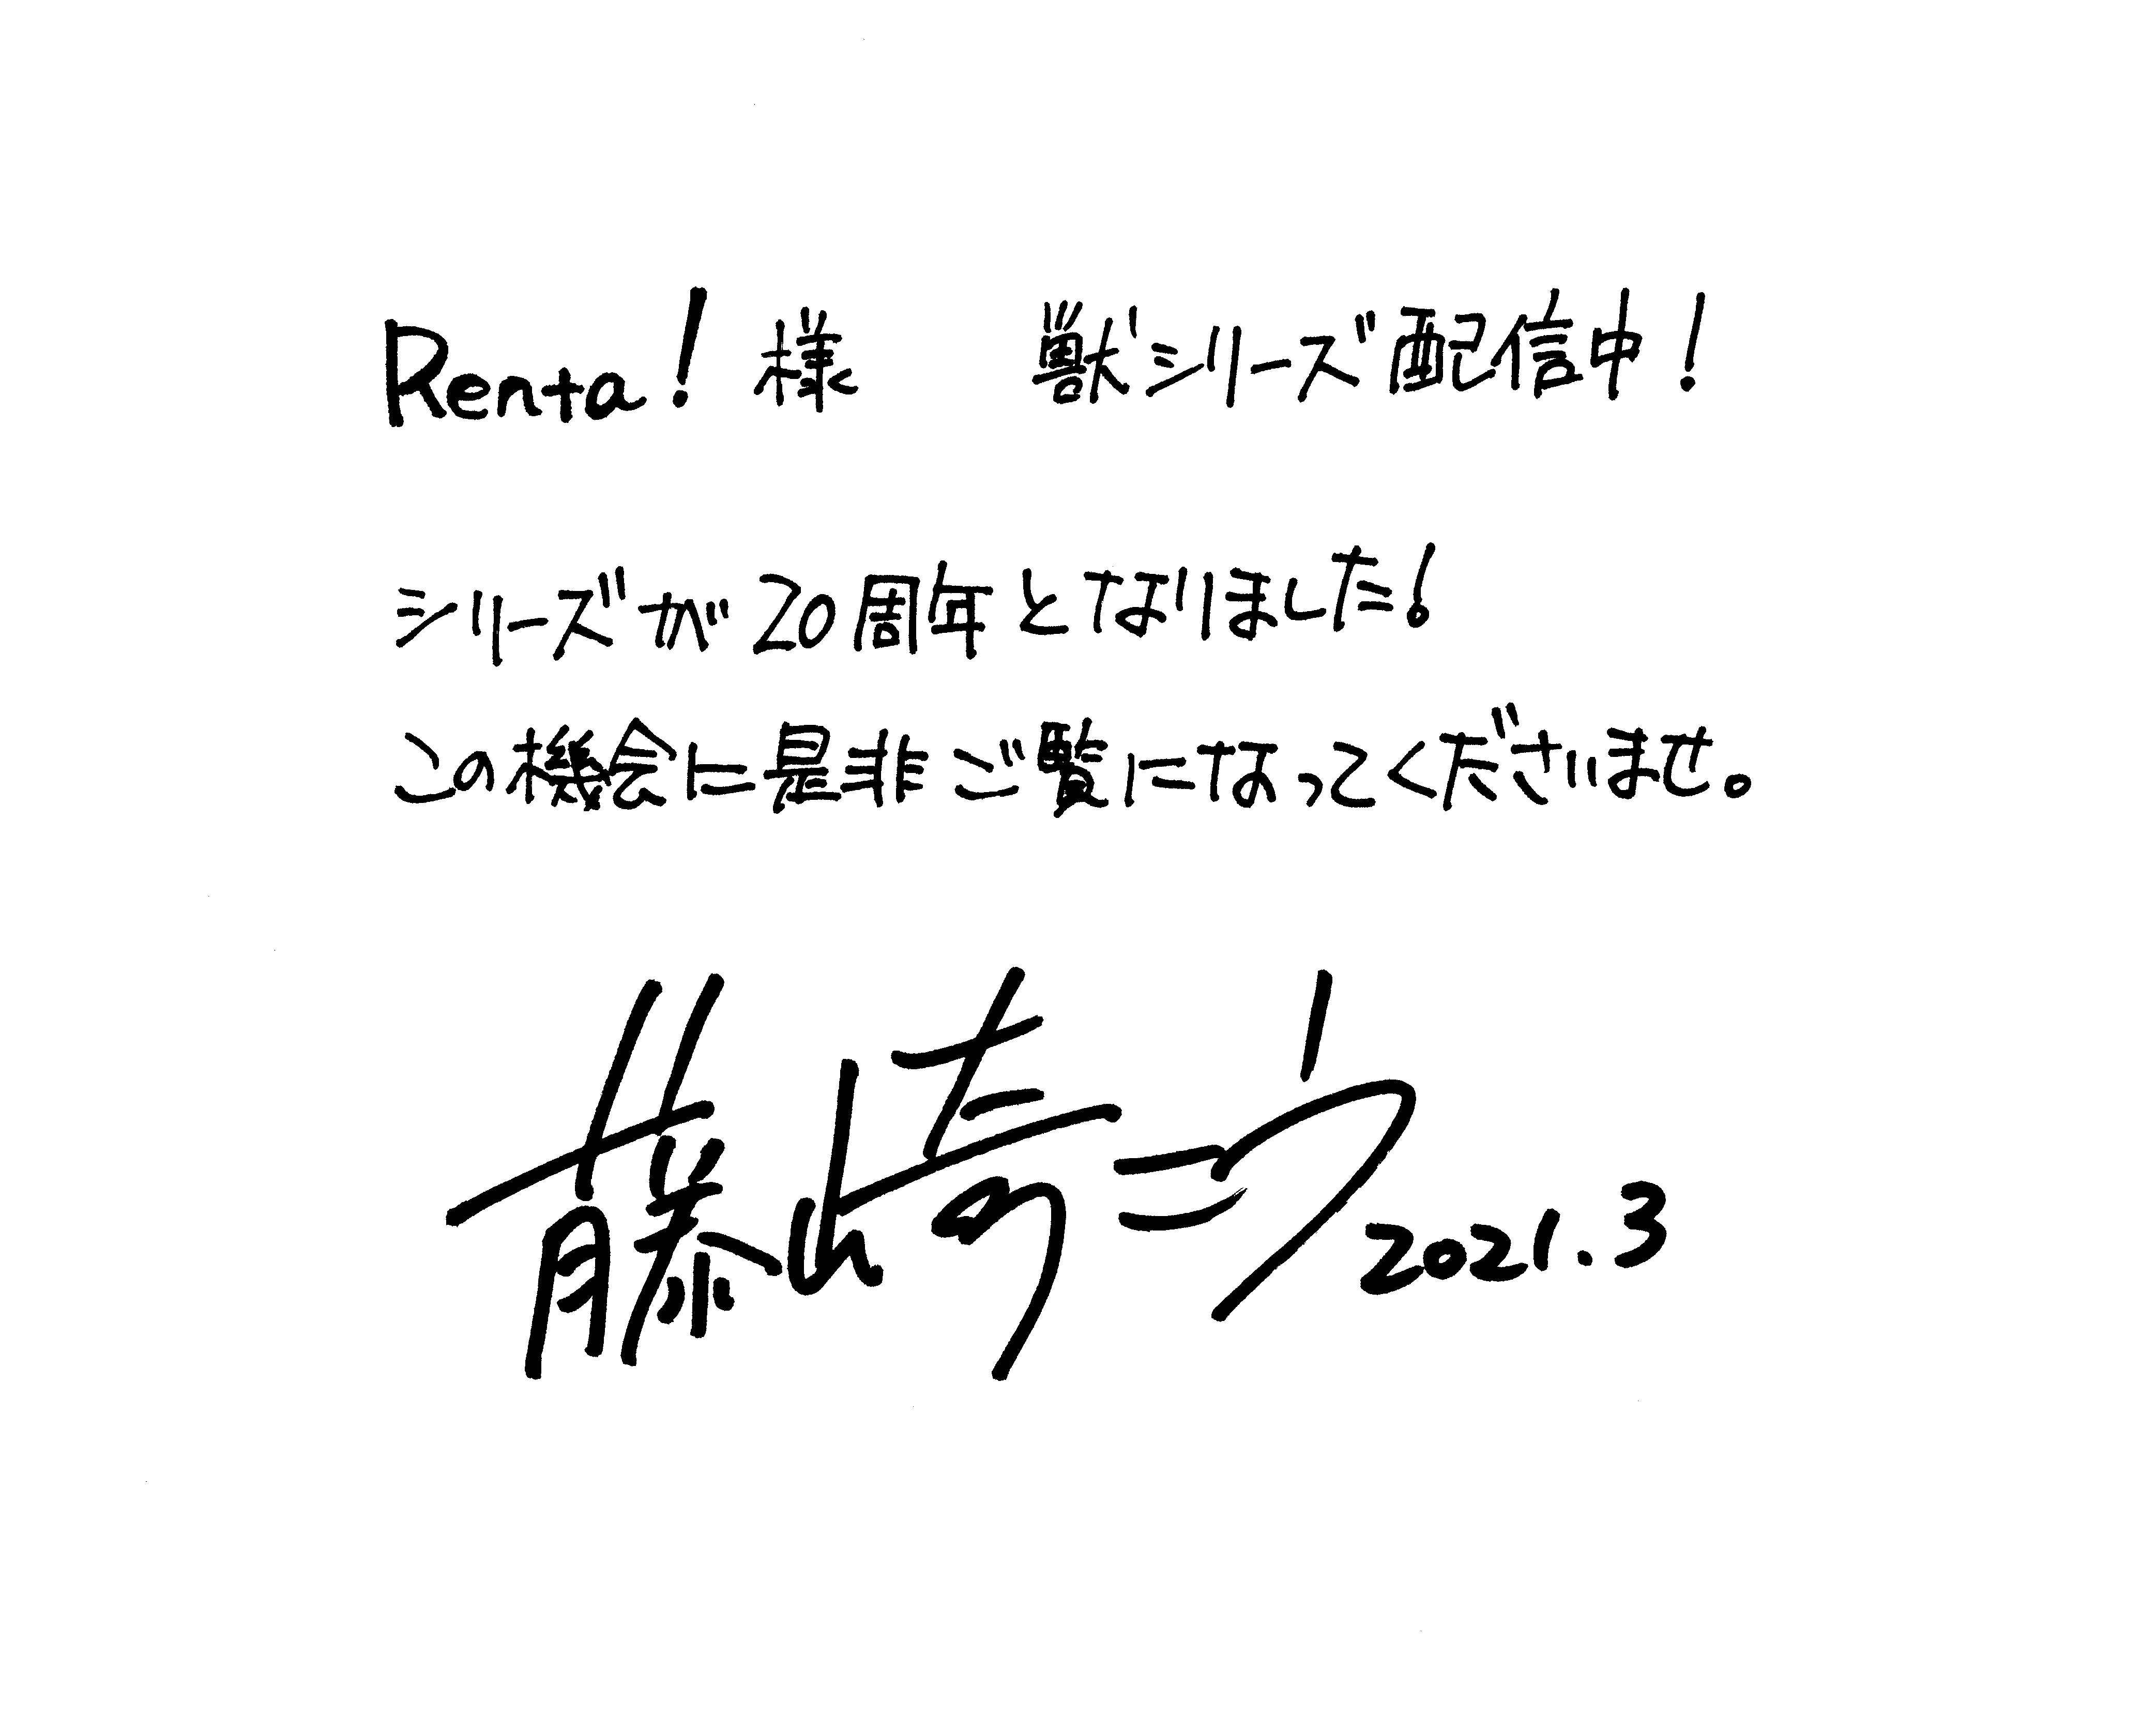 Renta! 様 獣シリーズ配信中!
シリーズが20周年となりました!
この機会に是非ご覧になってくださいませ。
藤崎こう 2021.3